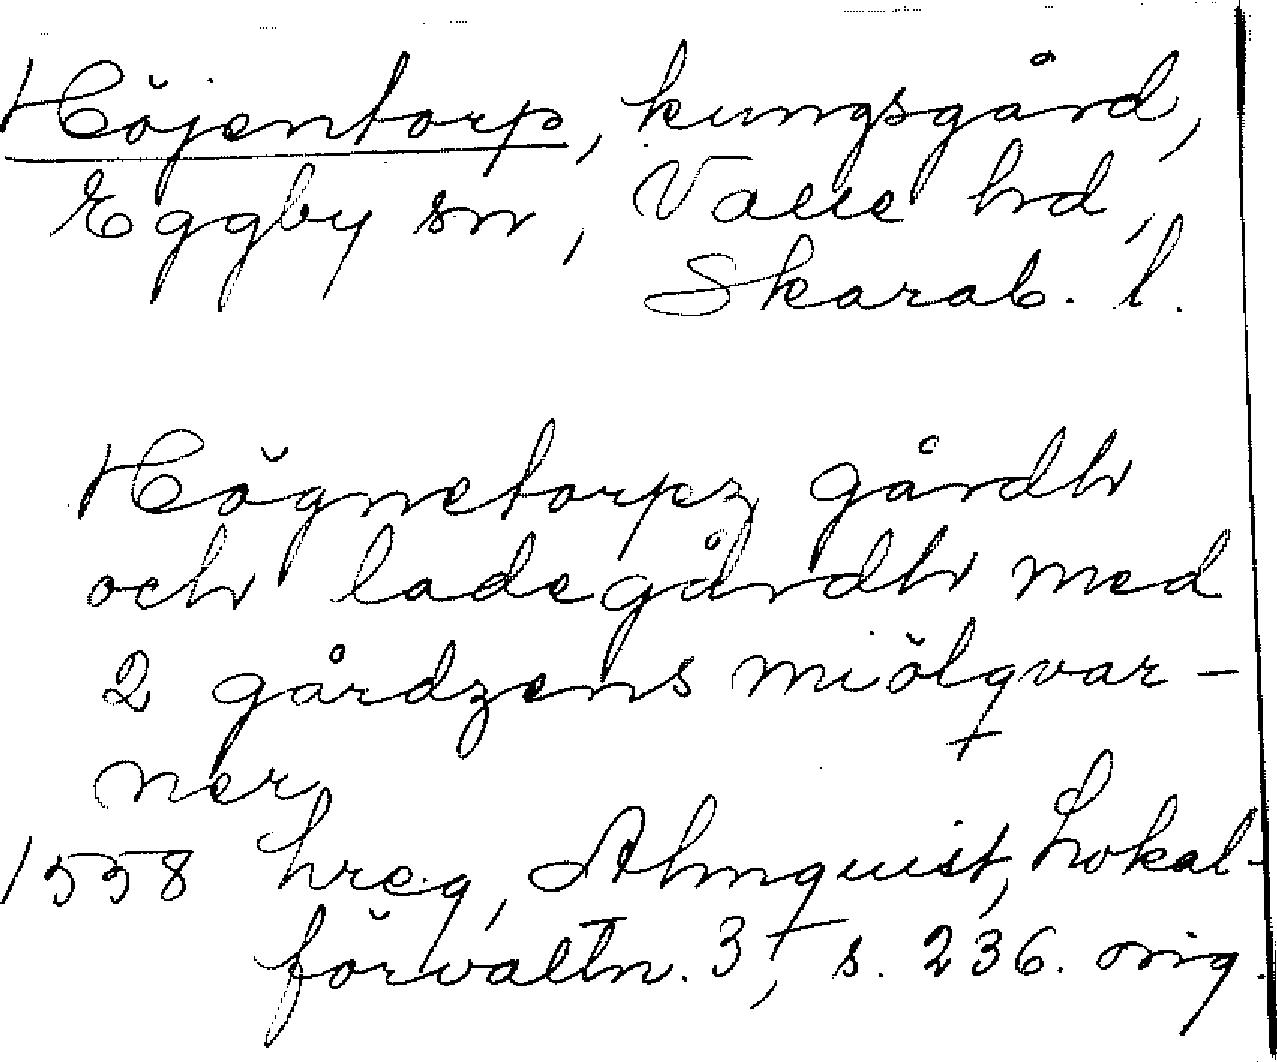 Höjentorp, kungsgård,
Eggby sn, Valle hd,
Skarab. l.
Högnetorpz gårdh
och ladegårdh med
2 gårdzens miölqvar-
ner
1558 hreg, Almquist, Lokal-
förvaltn. 3, s. 236. orig.